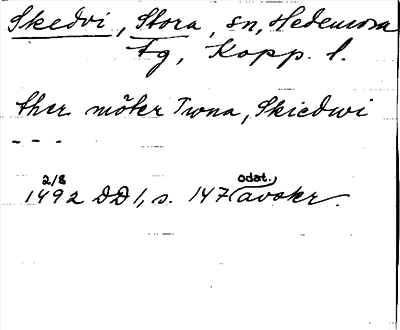 Skedvi, Stora, sn, Hedemora
tg, Kopp. l.
ther möter Twna, Skiedwi
- - -
2/8 odat.,
1492 DD1, s. 147 avskr.